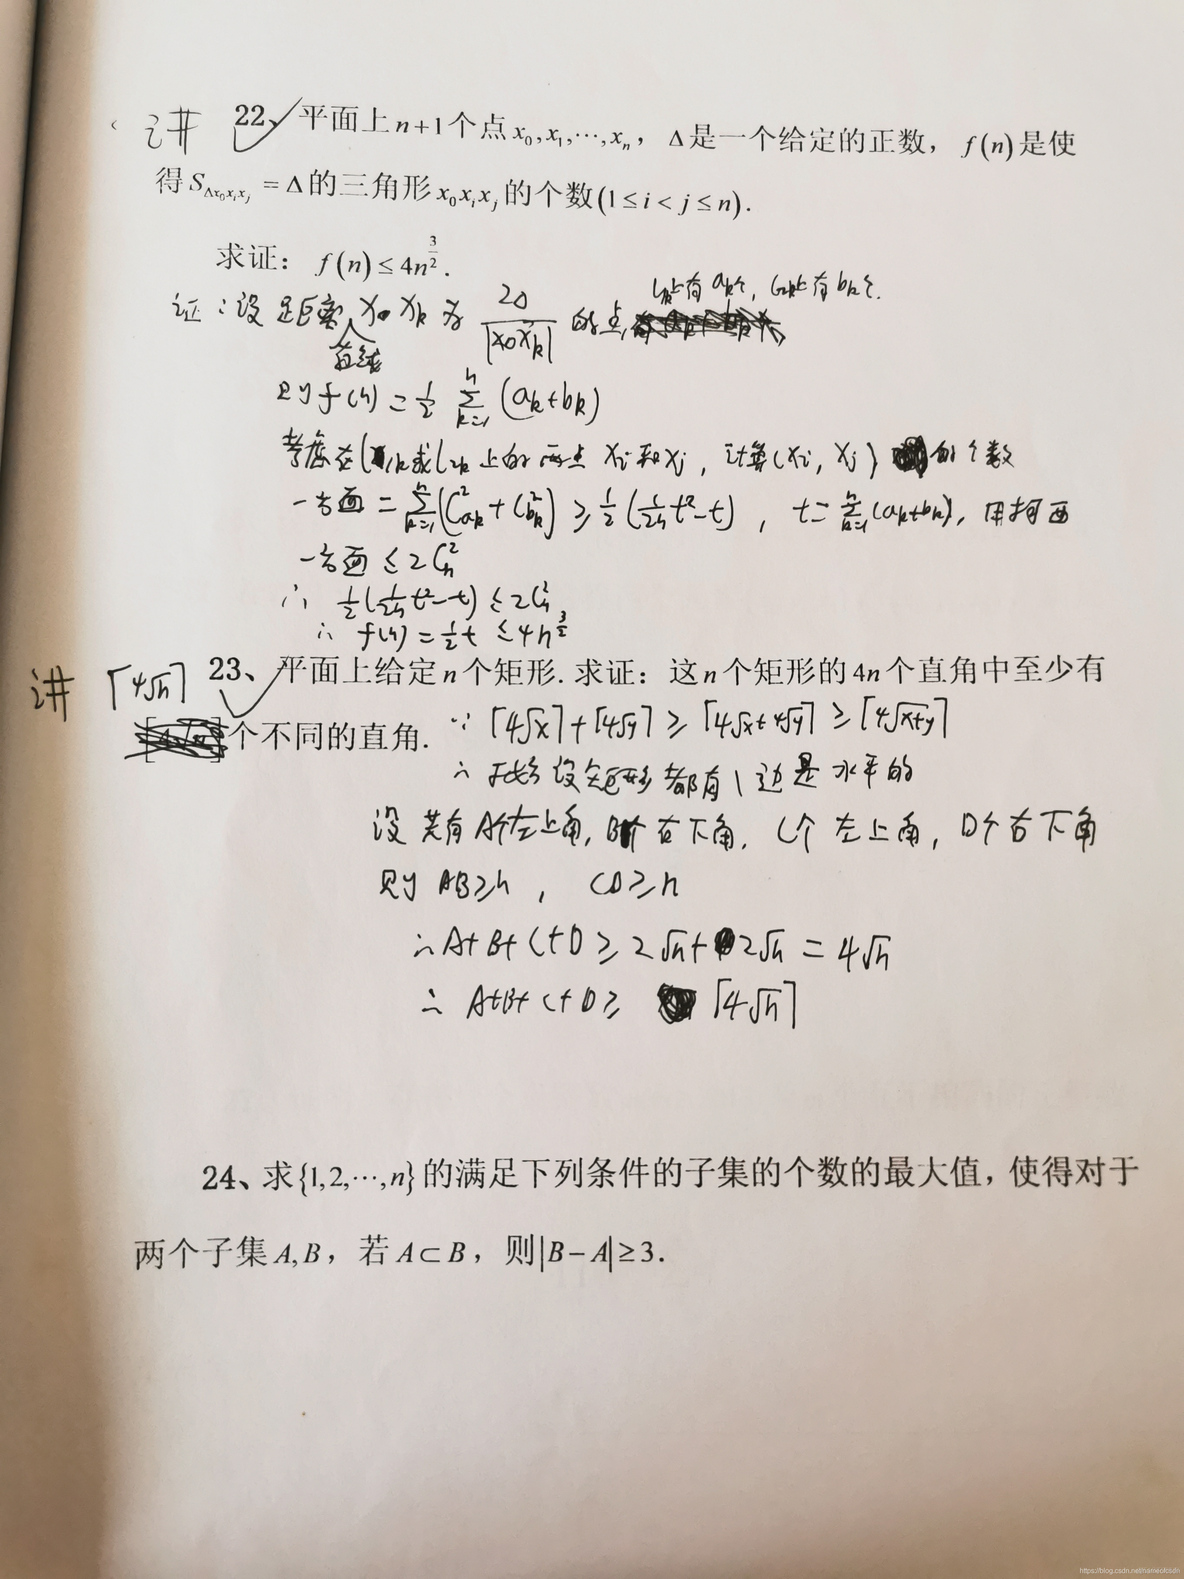 讲 22、平面上n+1个点x₀,x₁,⋯,xₙ，Δ是一个给定的正数，f(n)是使
得S_{Δx₀xᵢxⱼ}=Δ的三角形x₀xᵢxⱼ的个数(1≤i<j≤n).
求证：f(n)≤4n^{3/2}.
l₁ₖ上有aₖ个，l₂ₖ上有bₖ个.
证：设是距离x₀xₖ为 2Δ/|x₀xₖ| 的点
直线
则f(n)=½∑_{k=1}^{n}(aₖ+bₖ)
考虑在l₁ₖ或l₂ₖ上的两点xᵢ和xⱼ，计算(xᵢ,xⱼ)的个数
一方面=∑_{k=1}^{n}(C²_{aₖ}+C²_{bₖ})≥½(1/2n t²-t)，t=∑_{k=1}^{n}(aₖ+bₖ)，用柯西
一方面≤2C²ₙ
∴ ½(1/2n t²-t)≤2C²ₙ
∴ f(n)=½t≤4n^{3/2}
讲 ⌈4√n⌉ 23、平面上给定n个矩形.求证：这n个矩形的4n个直角中至少有
个不同的直角. ∵ ⌈4√x⌉+⌈4√y⌉≥⌈4√x+4√y⌉≥⌈4√x+y⌉
∴ 不妨设矩形都有1边是水平的
设共有A个左上角，B个右下角，C个左上角，D个右下角
则AB≥n，CD≥n
∴A+B+C+D≥2√n+2√n=4√n
∴ A+B+C+D≥⌈4√n⌉
24、求{1,2,⋯,n}的满足下列条件的子集的个数的最大值，使得对于
两个子集A,B，若A⊂B，则|B-A|≥3.